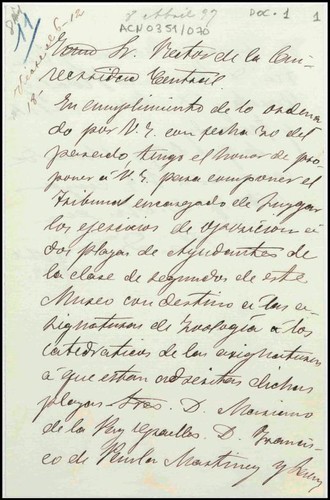 8 Abril 97
DOC. 1 1
ACN0351/070
11
Exmo Sr. Rector de la Uni-
versidad Central.
En cumplimiento de lo ordena-
do por V.E. con fecha 30 del
pasado tengo el honor de pro-
poner a V.E. para componer el
Tribunal encargado de juzgar
los ejercicios de oposicion á
dos plazas de Ayudantes de
la clase de segundos de este
Museo con destino a las a-
signaturas de Zoología a los
catedráticos de las asignaturas
á que estan adscritas dichas
plazas Sres. D. Mariano
de la Paz Graells. D. Francis-
co de Paula Martinez y